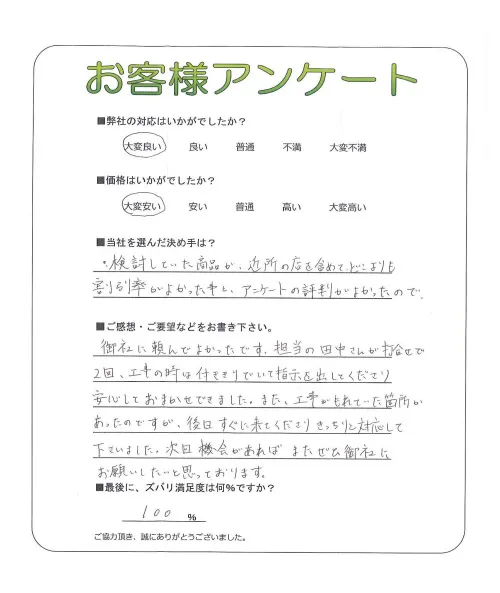 お客様アンケート
■弊社の対応はいかがでしたか？
大変良い 良い 普通 不満 大変不満
■価格はいかがでしたか？
大変安い 安い 普通 高い 大変高い
■当社を選んだ決め手は？
・検討していた商品が、近所の店を含めてどこよりも
割引率がよかった事と、アンケートの評判がよかったので。
■ご感想・ご要望などをお書き下さい。
御社に頼んでよかったです。担当の田中さんが打合せで
2回、工事の時は付ききりでいて指示を出してくださり
安心しておまかせできました。また、工事がもれていた箇所が
あったのですが、後日すぐに来てくださりきっちりと対応して
下さいました。次回機会があればまたぜひ御社に
お願いしたいと思っております。
■最後に、ズバリ満足度は何%ですか？
100 %
ご協力頂き、誠にありがとうございました。